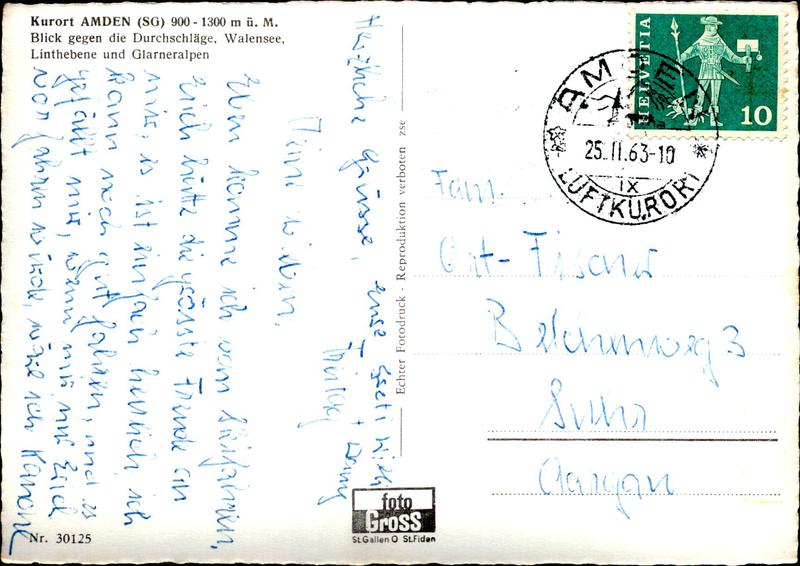 Kurort AMDEN (SG) 900 - 1300 m ü. M.
Blick gegen die Durchschläge, Walensee,
Linthebene und Glarneralpen
Meine Lieben,
Eben komme ich vom Skifahren,
Erich hätte die grösste Freude an
mir, es ist einfach herrlich ich
kann noch gut fahren, und es
gefällt mir, wenn mir nur Erich
vorfahren würde, wäre ich
Herzliche Grüsse, euse
Freitag
Echter Fotodruck - Reproduktion verboten zse
foto
Gross
St.Gallen O St.Fiden
HELVETIA
10
AMDEN
25.II.63-10
IX
LUFTKURORT
Fam.
Ort-Fischer
Buchenweg 3
Suhr
Aargau
Nr. 30125